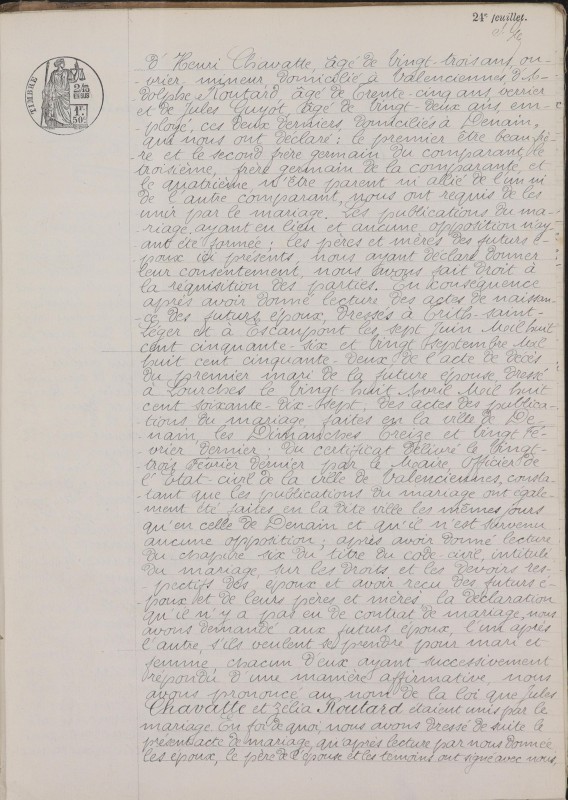 24e feuillet.
TIMBRE
1F.
50c
D'Henri Chavatte, âgé de vingt-trois ans, ou-
vrier mineur, domicilié à Valenciennes, d'A-
dolphe Routard, âgé de trente-cinq ans, verrier
et de Jules Guyot, âgé de vingt-deux ans, em-
ployé, ces deux derniers domiciliés à Denain,
qui nous ont déclaré: le premier être beau-frè-
re et le second frère germain du comparant, le
troisième, frère germain de la comparante, et
le quatrième, n'être parent ni allié de l'un ni
de l'autre comparant, nous ont requis de les
unir par le mariage. Les publications du ma-
riage, ayant eu lieu et aucune opposition n'ay-
ant été formée; les pères et mères des futurs é-
poux ici présents, nous ayant déclaré donner
leur consentement, nous avons fait droit à
la réquisition des parties. En conséquence
après avoir donné lecture des actes de naissan-
ce des futurs époux, dressés à Trith-saint-
Léger et à Escaupont les sept Juin Mil huit
cent cinquante-six et vingt Septembre Mil
huit cent cinquante-deux, de l'acte de décès
du premier mari de la future épouse, dressé
à Lourches le vingt-huit Avril Mil huit
cent soixante-dix-sept, des actes des publica-
tions du mariage, faites en la ville de De-
nain, les Dimanches treize et vingt Fé-
vrier dernier; du certificat délivré le vingt-
trois Février dernier par le Maire, Officier de
l'état-civil de la ville de Valenciennes, consta-
tant que les publications du mariage ont égale-
ment été faites en la dite ville les mêmes jours
qu'en celle de Denain et qu'il n'est survenu
aucune opposition; après avoir donné lecture
du chapitre six du titre du code-civil, intitulé
du mariage, sur les droits et les devoirs res-
pectifs des époux et avoir reçu des futurs é-
poux et de leurs pères et mères, la déclaration
qu'il n'y a pas eu de contrat de mariage, nous
avons demandé aux futurs époux, l'un après
l'autre, s'ils veulent se prendre pour mari et
femme, chacun d'eux ayant successivement
répondu d'une manière affirmative, nous
avons prononcé au nom de la loi que Jules
Chavatte et Zélia Routard étaient unis par le
mariage. En foi de quoi, nous avons dressé de suite le
présent acte de mariage, qu'après lecture par nous donnée
les époux, le père de l'épouse et les témoins ont signé avec nous,